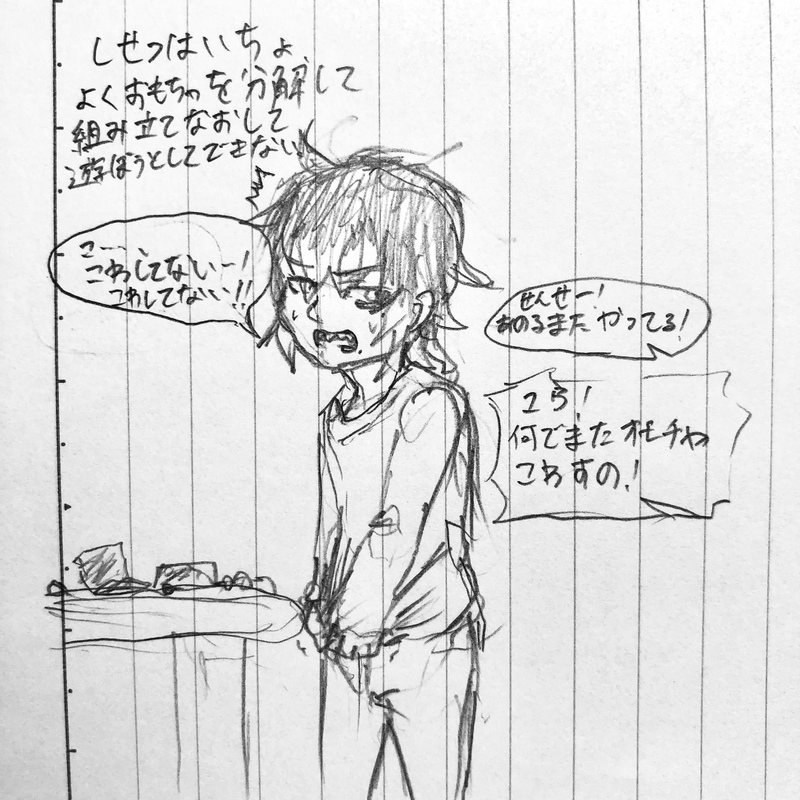 しせつはいちょ
よくおもちゃを分解して
組み立てなおして
遊ぼうとしてできない
こー、
こわしてないー!
こわしてない!!
せんせー!
あのるまた やってる!
こら!
何でまたオモチャ
こわすの!